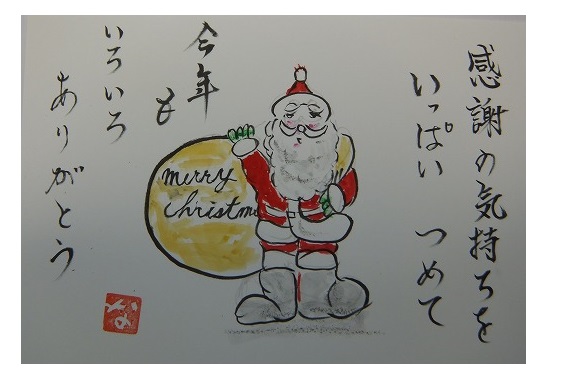 感謝の気持ちを
いっぱい つめて
今年も
いろいろ
ありがとう
merry
christm